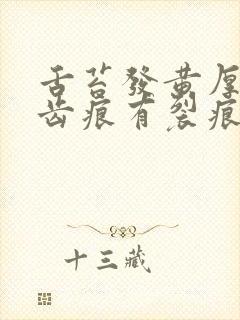 舌苔發黃厚
齒痕有裂痕
十三藏